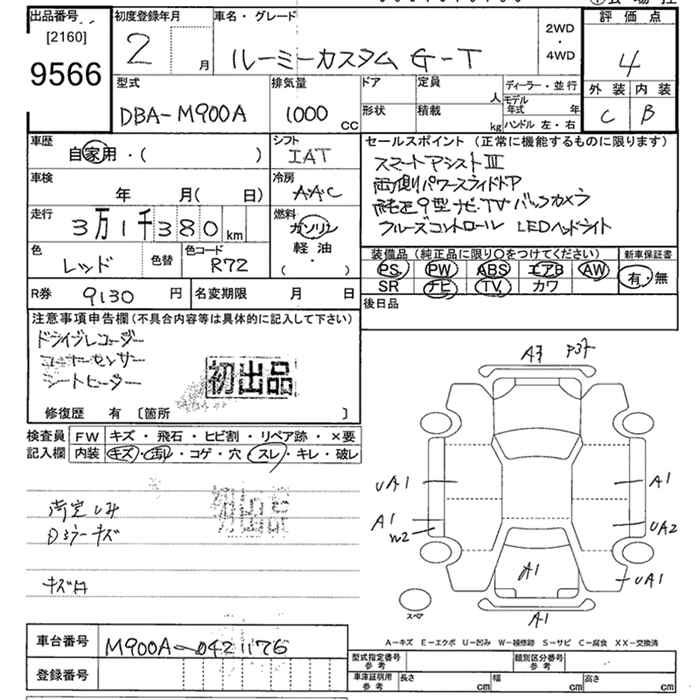 出品番号 初度登録年月 車名・グレード 評価点
[2160]
9566
2 月 ルーミーカスタム G-T 2WD ・ 4WD 4
外装 内装
C B
型式 排気量 ドア 定員 ディーラー・並行
DBA-M900A 1000 CC 人 モデル年式 年
形状 積載 kg ハンドル 左・右
車歴 シフト セールスポイント (正常に機能するものに限ります)
自家用・( ) IAT
スマートアシストIII
車検 冷房
年 月( 日) AAC
両側パワースライドドア
純正9型ナビTV バックカメラ
クルーズコントロール LEDヘッドライト
走行 燃料
3万1千380km ガソリン
軽油
( ・ )
色 色替 色コード
レッド R72
装備品 (純正品に限り○をつけてください) 新車保証書
PS PW ABS エアB AW 有・無
SR ナビ TV カワ
R券 9130 円 名変期限 月 日
後日品
注意事項申告欄(不具合内容等は具体的に記入して下さい)
ドライブレコーダー
コーナーセンサー
シートヒーター
初出品
修復歴 有 〔箇所 〕
検査員 FW キズ・飛石・ヒビ割・リペア跡・×要
記入欄 内装 キズ・汚レ・コゲ・穴・スレ・キレ・破レ
初出品
キズ
UA1 A1
A1 UA2
W2
A1 UA1
スペア
A1
A-キズ E-エクボ U-凹み W-補修跡 S-サビ C-腐食 XX-交換済
車台番号 M900A-0421176
型式指定番号 参考 類別区分番号 参考
登録番号
車庫証明用 参考 長さ cm 幅 cm 高さ cm